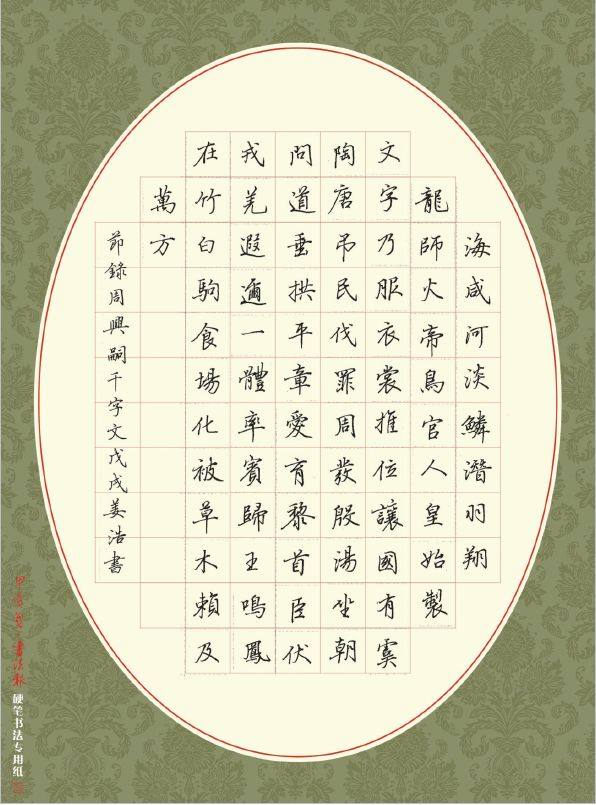 海咸河淡鱗潛羽翔
龍師火帝鳥官人皇始製
文字乃服衣裳推位讓國有虞
陶唐吊民伐罪周發殷湯坐朝
問道垂拱平章愛育黎首臣伏
戎羌遐邇一體率賓歸王鳴鳳
在竹白駒食場化被草木賴及
萬方
節錄周興嗣千字文戊戌姜浩書
书法报
硬笔书法专用纸